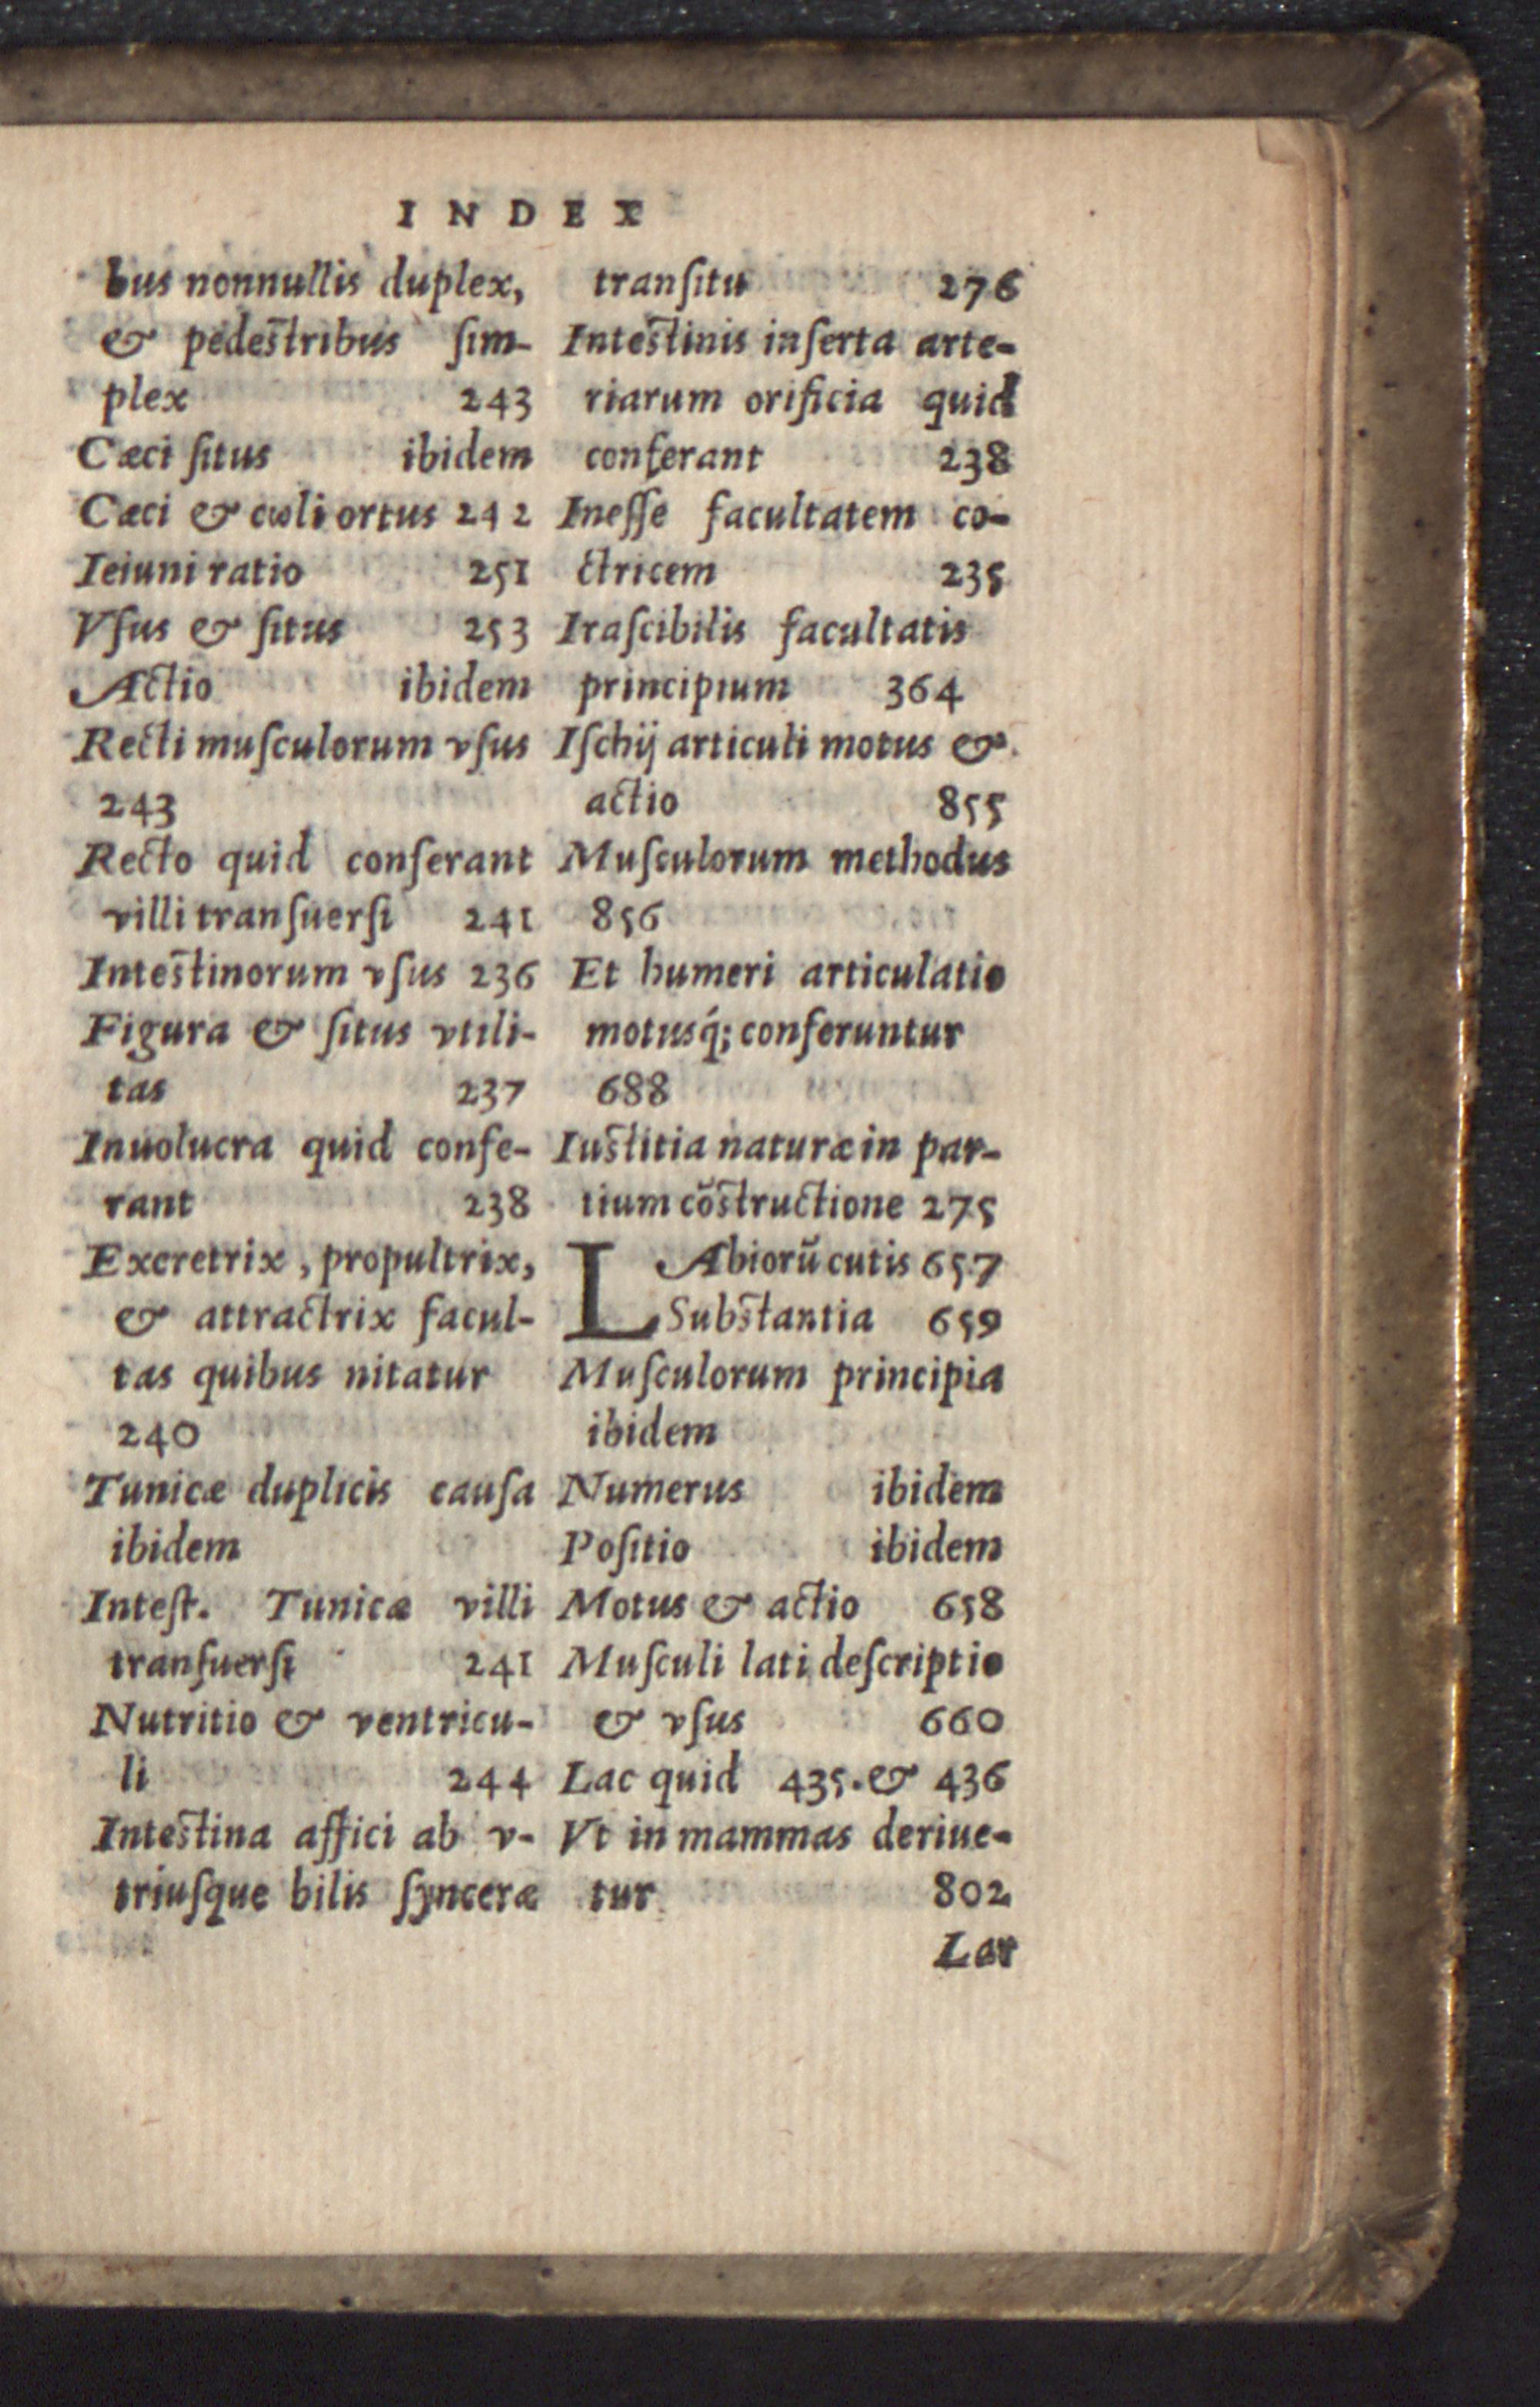 INDEX
bus nonnullis duplex,
& pedestribus ſim-
plex 243
Cæci ſitus ibidem
Cæci & cωli ortus 242
Ieiuni ratio 251
Vſus & ſitus 253
Actio ibidem
Recti muſculorum vſus
243
Recto quid conſerant
villi tranſuerſi 241
Intestinorum vſus 236
Figura & ſitus vtili-
tas 237
Inuolucra quid confe-
rant 238
Excretrix, propultrix,
& attractrix facul-
tas quibus nitatur
240
Tunicæ duplicis cauſa
ibidem
Inteſt. Tunicæ villi
tranſuerſi 241
Nutritio & ventricu-
li 244
Intestina affici ab v-
triuſque bilis ſynceræ
tranſitu 276
Intestinis inſerta arte-
riarum orificia quid
conferant 238
Ineſſe facultatem co-
ctricem 235
Iraſcibilis facultatis
principium 364
Iſchij articuli motus &
actio 855
Muſculorum methodus
856
Et humeri articulatio
motusq́; conferuntur
688
Iustitia naturæ in par-
tium cõstructione 275
LAbiorũ cutis 657
Substantia 659
Muſculorum principia
ibidem
Numerus ibidem
Poſitio ibidem
Motus & actio 658
Muſculi lati deſcriptio
& vſus 660
Lac quid 435. & 436
Vt in mammas deriue-
tur 802
Lar